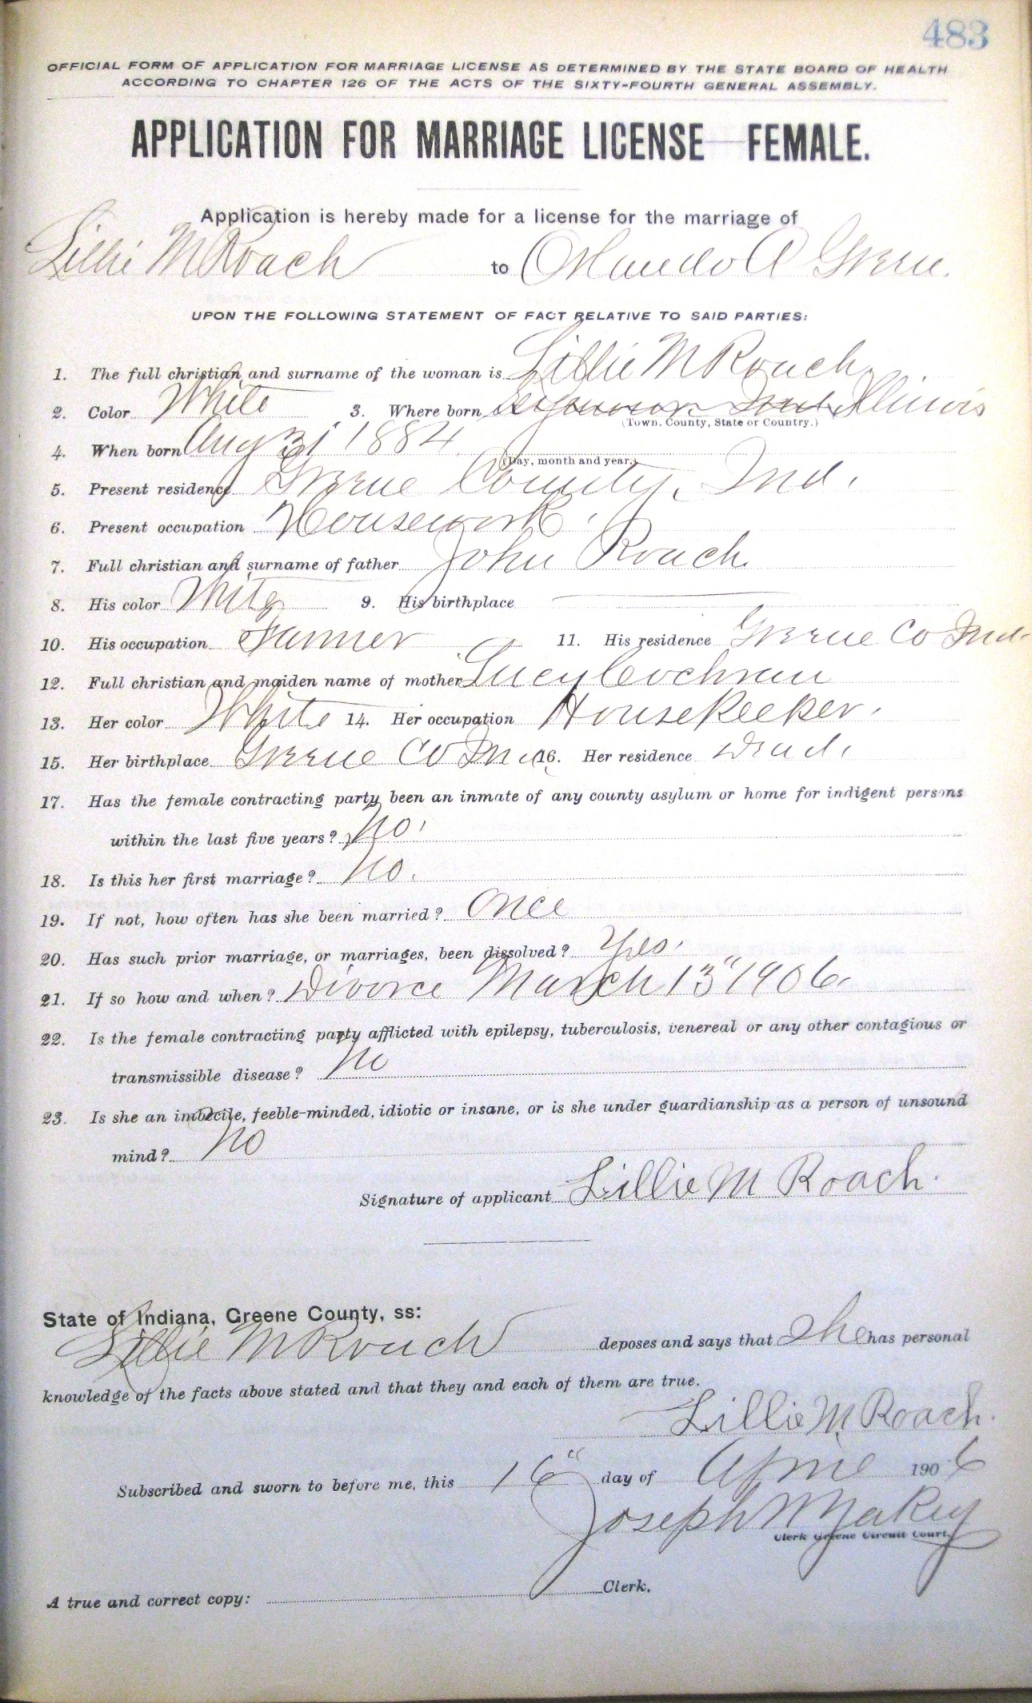 483
OFFICIAL FORM OF APPLICATION FOR MARRIAGE LICENSE AS DETERMINED BY THE STATE BOARD OF HEALTH
ACCORDING TO CHAPTER 126 OF THE ACTS OF THE SIXTY-FOURTH GENERAL ASSEMBLY.
APPLICATION FOR MARRIAGE LICENSE FEMALE.
Application is hereby made for a license for the marriage of
Lillie M Roach to Orlando A Green.
UPON THE FOLLOWING STATEMENT OF FACT RELATIVE TO SAID PARTIES:
1. The full christian and surname of the woman is Lillie M Roach
2. Color White 3. Where born Illinois
(Town, County, State or Country.)
4. When born Aug 31 1884
(Day, month and year.)
5. Present residence Greene County, Ind.
6. Present occupation Housework.
7. Full christian and surname of father John Roach
8. His color White 9. His birthplace
10. His occupation Farmer 11. His residence Greene Co Ind.
12. Full christian and maiden name of mother Lucy Cochran
13. Her color White 14. Her occupation HouseKeeper.
15. Her birthplace Greene Co Ind. 16. Her residence Dead.
17. Has the female contracting party been an inmate of any county asylum or home for indigent persons
within the last five years? No.
18. Is this her first marriage? No.
19. If not, how often has she been married? Once
20. Has such prior marriage, or marriages, been dissolved? Yes.
21. If so how and when? Divorce March 13" 1906.
22. Is the female contracting party afflicted with epilepsy, tuberculosis, venereal or any other contagious or
transmissible disease? No
23. Is she an imbecile, feeble-minded, idiotic or insane, or is she under guardianship as a person of unsound
mind? No
Signature of applicant Lillie M Roach.
State of Indiana, Greene County, ss:
Lillie M Roach deposes and says that She has personal
knowledge of the facts above stated and that they and each of them are true.
Lillie M. Roach.
Subscribed and sworn to before me, this 16" day of April 1906
Joseph
Clerk Greene Circuit Court.
A true and correct copy: Clerk.